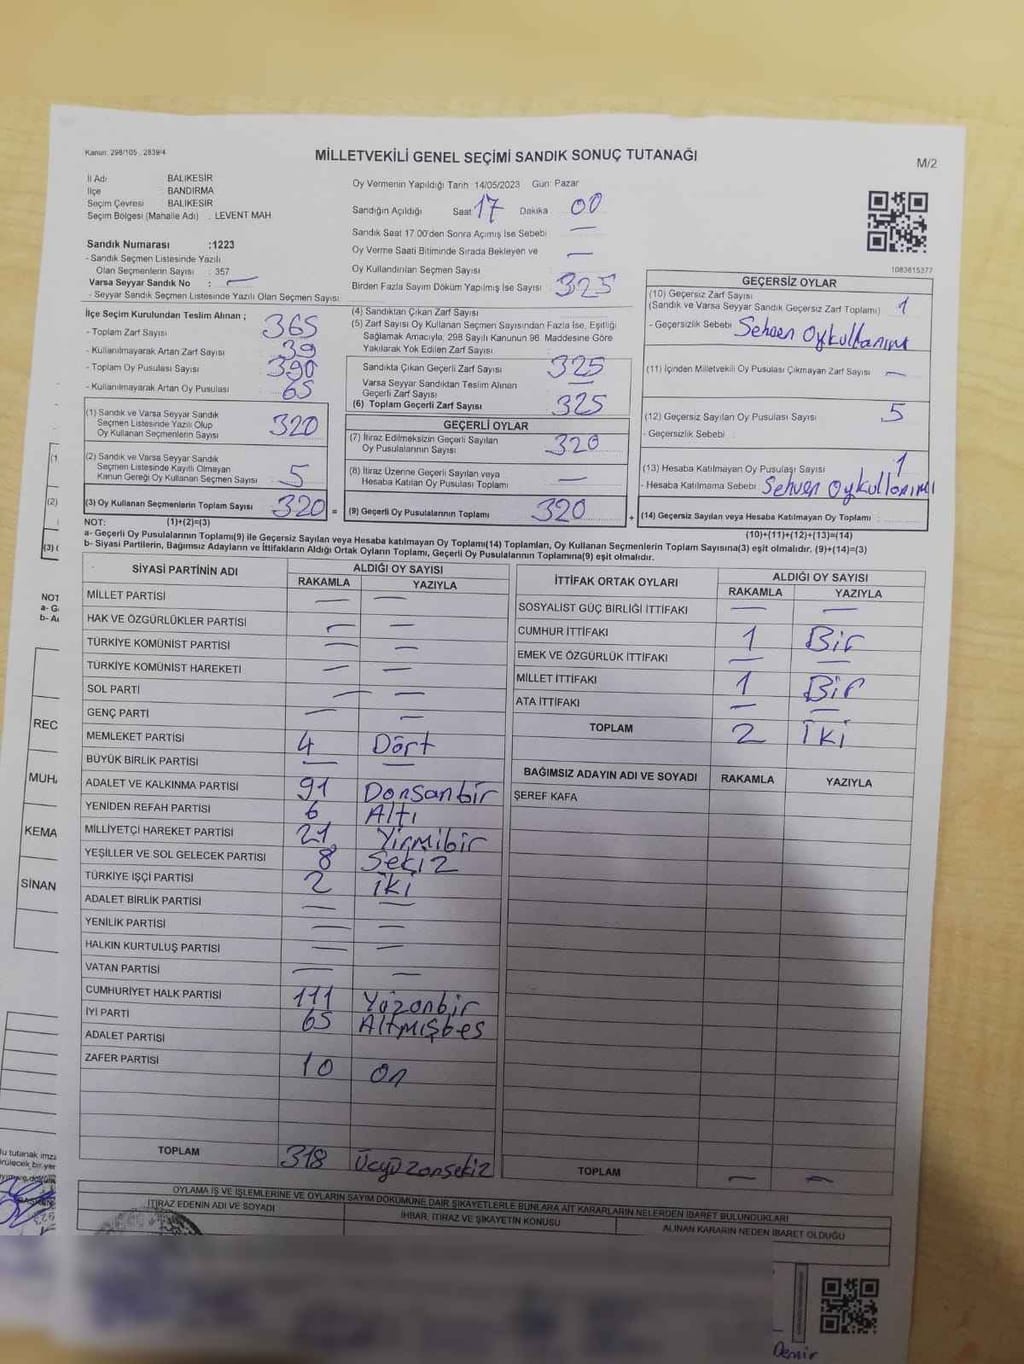 Kanun: 298/105 , 2839/4
MİLLETVEKİLİ GENEL SEÇİMİ SANDIK SONUÇ TUTANAĞI
M/2
İl Adı BALIKESİR
İlçe BANDIRMA
Seçim Çevresi BALIKESİR
Seçim Bölgesi (Mahalle Adı) : LEVENT MAH
Sandık Numarası :1223
- Sandık Seçmen Listesinde Yazılı
Olan Seçmenlerin Sayısı : 357
Varsa Seyyar Sandık No : —
- Seyyar Sandık Seçmen Listesinde Yazılı Olan Seçmen Sayısı
İlçe Seçim Kurulundan Teslim Alınan ;
- Toplam Zarf Sayısı 365
- Kullanılmayarak Artan Zarf Sayısı 39
- Toplam Oy Pusulası Sayısı 390
- Kullanılmayarak Artan Oy Pusulası 65
(1) Sandık ve Varsa Seyyar Sandık
Seçmen Listesinde Yazılı Olup
Oy Kullanan Seçmenlerin Sayısı 320
(2) Sandık ve Varsa Seyyar Sandık
Seçmen Listesinde Kayıtlı Olmayan
Kanun Gereği Oy Kullanan Seçmen Sayısı 5
(3) Oy Kullanan Seçmenlerin Toplam Sayısı 320 =
Oy Vermenin Yapıldığı Tarih 14/05/2023 Gün: Pazar
Sandığın Açıldığı Saat 17 Dakika 00
Sandık Saat 17.00'den Sonra Açımış İse Sebebi —
Oy Verme Saati Bitiminde Sırada Bekleyen ve
Oy Kullandırılan Seçmen Sayısı —
Birden Fazla Sayım Döküm Yapılmış İse Sayısı
(4) Sandıktan Çıkan Zarf Sayısı 325
(5) Zarf Sayısı Oy Kullanan Seçmen Sayısından Fazla İse, Eşitliği
Sağlamak Amacıyla, 298 Sayılı Kanunun 96. Maddesine Göre
Yakılarak Yok Edilen Zarf Sayısı
Sandıkta Çıkan Geçerli Zarf Sayısı 325
Varsa Seyyar Sandıktan Teslim Alınan
Geçerli Zarf Sayısı —
(6) Toplam Geçerli Zarf Sayısı 325
GEÇERLİ OYLAR
(7) İtiraz Edilmeksizin Geçerli Sayılan
Oy Pusulalarının Sayısı 320
(8) İtiraz Üzerine Geçerli Sayılan veya
Hesaba Katılan Oy Pusulası Toplamı —
(9) Geçerli Oy Pusulalarının Toplamı 320 +
1083615377
GEÇERSİZ OYLAR
(10) Geçersiz Zarf Sayısı
(Sandık ve Varsa Seyyar Sandık Geçersiz Zarf Toplamı) 1
- Geçersizlik Sebebi Sehven Oykullanımı
(11) İçinden Milletvekili Oy Pusulası Çıkmayan Zarf Sayısı —
(12) Geçersiz Sayılan Oy Pusulası Sayısı 5
- Geçersizlik Sebebi :
(13) Hesaba Katılmayan Oy Pusulası Sayısı 1
- Hesaba Katılmama Sebebi Sehven Oykullanımı
(14) Geçersiz Sayılan veya Hesaba Katılmayan Oy Toplamı
NOT: (1)+(2)=(3) (10)+(11)+(12)+(13)=(14)
a- Geçerli Oy Pusulaları Toplamı(9) ile Geçersiz Sayılan veya Hesaba Katılmayan Oy Toplamı(14) Toplamları, Oy Kullanan Seçmenlerin Toplam Sayısına(3) eşit olmalıdır. (9)+(14)=(3)
b- Siyasi Partilerin, Bağımsız Adayların ve İttifakların Aldığı Ortak Oyların Toplamı, Geçerli Oy Pusulalarının Toplamına(9) eşit olmalıdır.
SİYASİ PARTİNİN ADI ALDIĞI OY SAYISI
RAKAMLA YAZIYLA
MİLLET PARTİSİ — —
HAK VE ÖZGÜRLÜKLER PARTİSİ — —
TÜRKİYE KOMÜNİST PARTİSİ — —
TÜRKİYE KOMÜNİST HAREKETİ — —
SOL PARTİ — —
GENÇ PARTİ — —
MEMLEKET PARTİSİ 4 Dört
BÜYÜK BİRLİK PARTİSİ — —
ADALET VE KALKINMA PARTİSİ 91 Donsanbir
YENİDEN REFAH PARTİSİ 6 Altı
MİLLİYETÇİ HAREKET PARTİSİ 21 Yirmibir
YEŞİLLER VE SOL GELECEK PARTİSİ 8 Sekiz
TÜRKİYE İŞÇİ PARTİSİ 2 iki
ADALET BİRLİK PARTİSİ — —
YENİLİK PARTİSİ — —
HALKIN KURTULUŞ PARTİSİ — —
VATAN PARTİSİ — —
CUMHURİYET HALK PARTİSİ 111 Yüzonbir
İYİ PARTİ 65 Altmışbeş
ADALET PARTİSİ
ZAFER PARTİSİ 10 On
TOPLAM 318 Üçyüzonsekiz
İTTİFAK ORTAK OYLARI ALDIĞI OY SAYISI
RAKAMLA YAZIYLA
SOSYALİST GÜÇ BİRLİĞİ İTTİFAKI — —
CUMHUR İTTİFAKI 1 Bir
EMEK VE ÖZGÜRLÜK İTTİFAKI — —
MİLLET İTTİFAKI 1 Bir
ATA İTTİFAKI — —
TOPLAM 2 İki
BAĞIMSIZ ADAYIN ADI VE SOYADI RAKAMLA YAZIYLA
ŞEREF KAFA
TOPLAM — —
OYLAMA İŞ VE İŞLEMLERİNE VE OYLARIN SAYIM DÖKÜMÜNE DAİR ŞİKAYETLERLE BUNLARA AİT KARARLARIN NELERDEN İBARET BULUNDUKLARI
İTİRAZ EDENİN ADI VE SOYADI İHBAR, İTİRAZ VE ŞİKAYETİN KONUSU ALINAN KARARIN NEDEN İBARET OLDUĞU
Demir
(1
(2)
(3) (
NOT
a- G
b- A
REC
MUH
KEMA
SİNAN